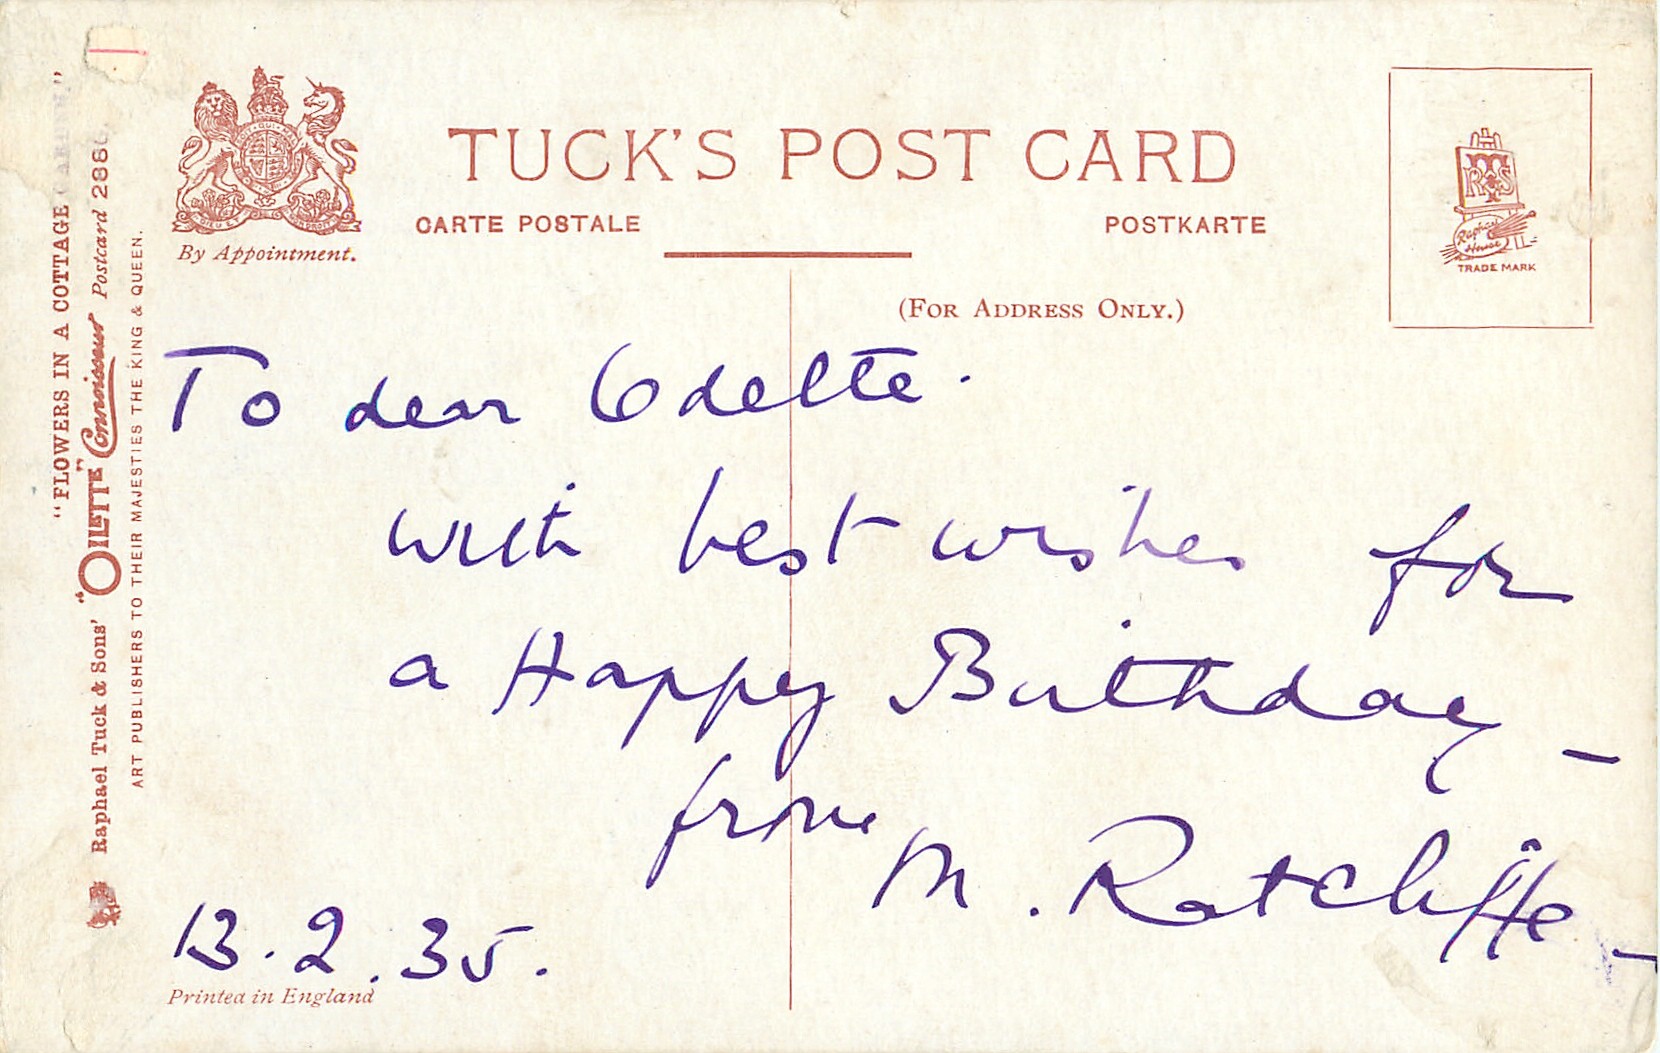 TUCK'S POST CARD
CARTE POSTALE
POSTKARTE
By Appointment.
(FOR ADDRESS ONLY.)
TRADE MARK
"FLOWERS IN A COTTAGE
Raphael Tuck & Sons' "OILETTE" Connoisseur Postcard
ART PUBLISHERS TO THEIR MAJESTIES THE KING & QUEEN.
Raphael
House
To dear Odette.
with best wishes for
a Happy Birthday –
from
M. Ratcliffe –
13.2.35.
Printed in England